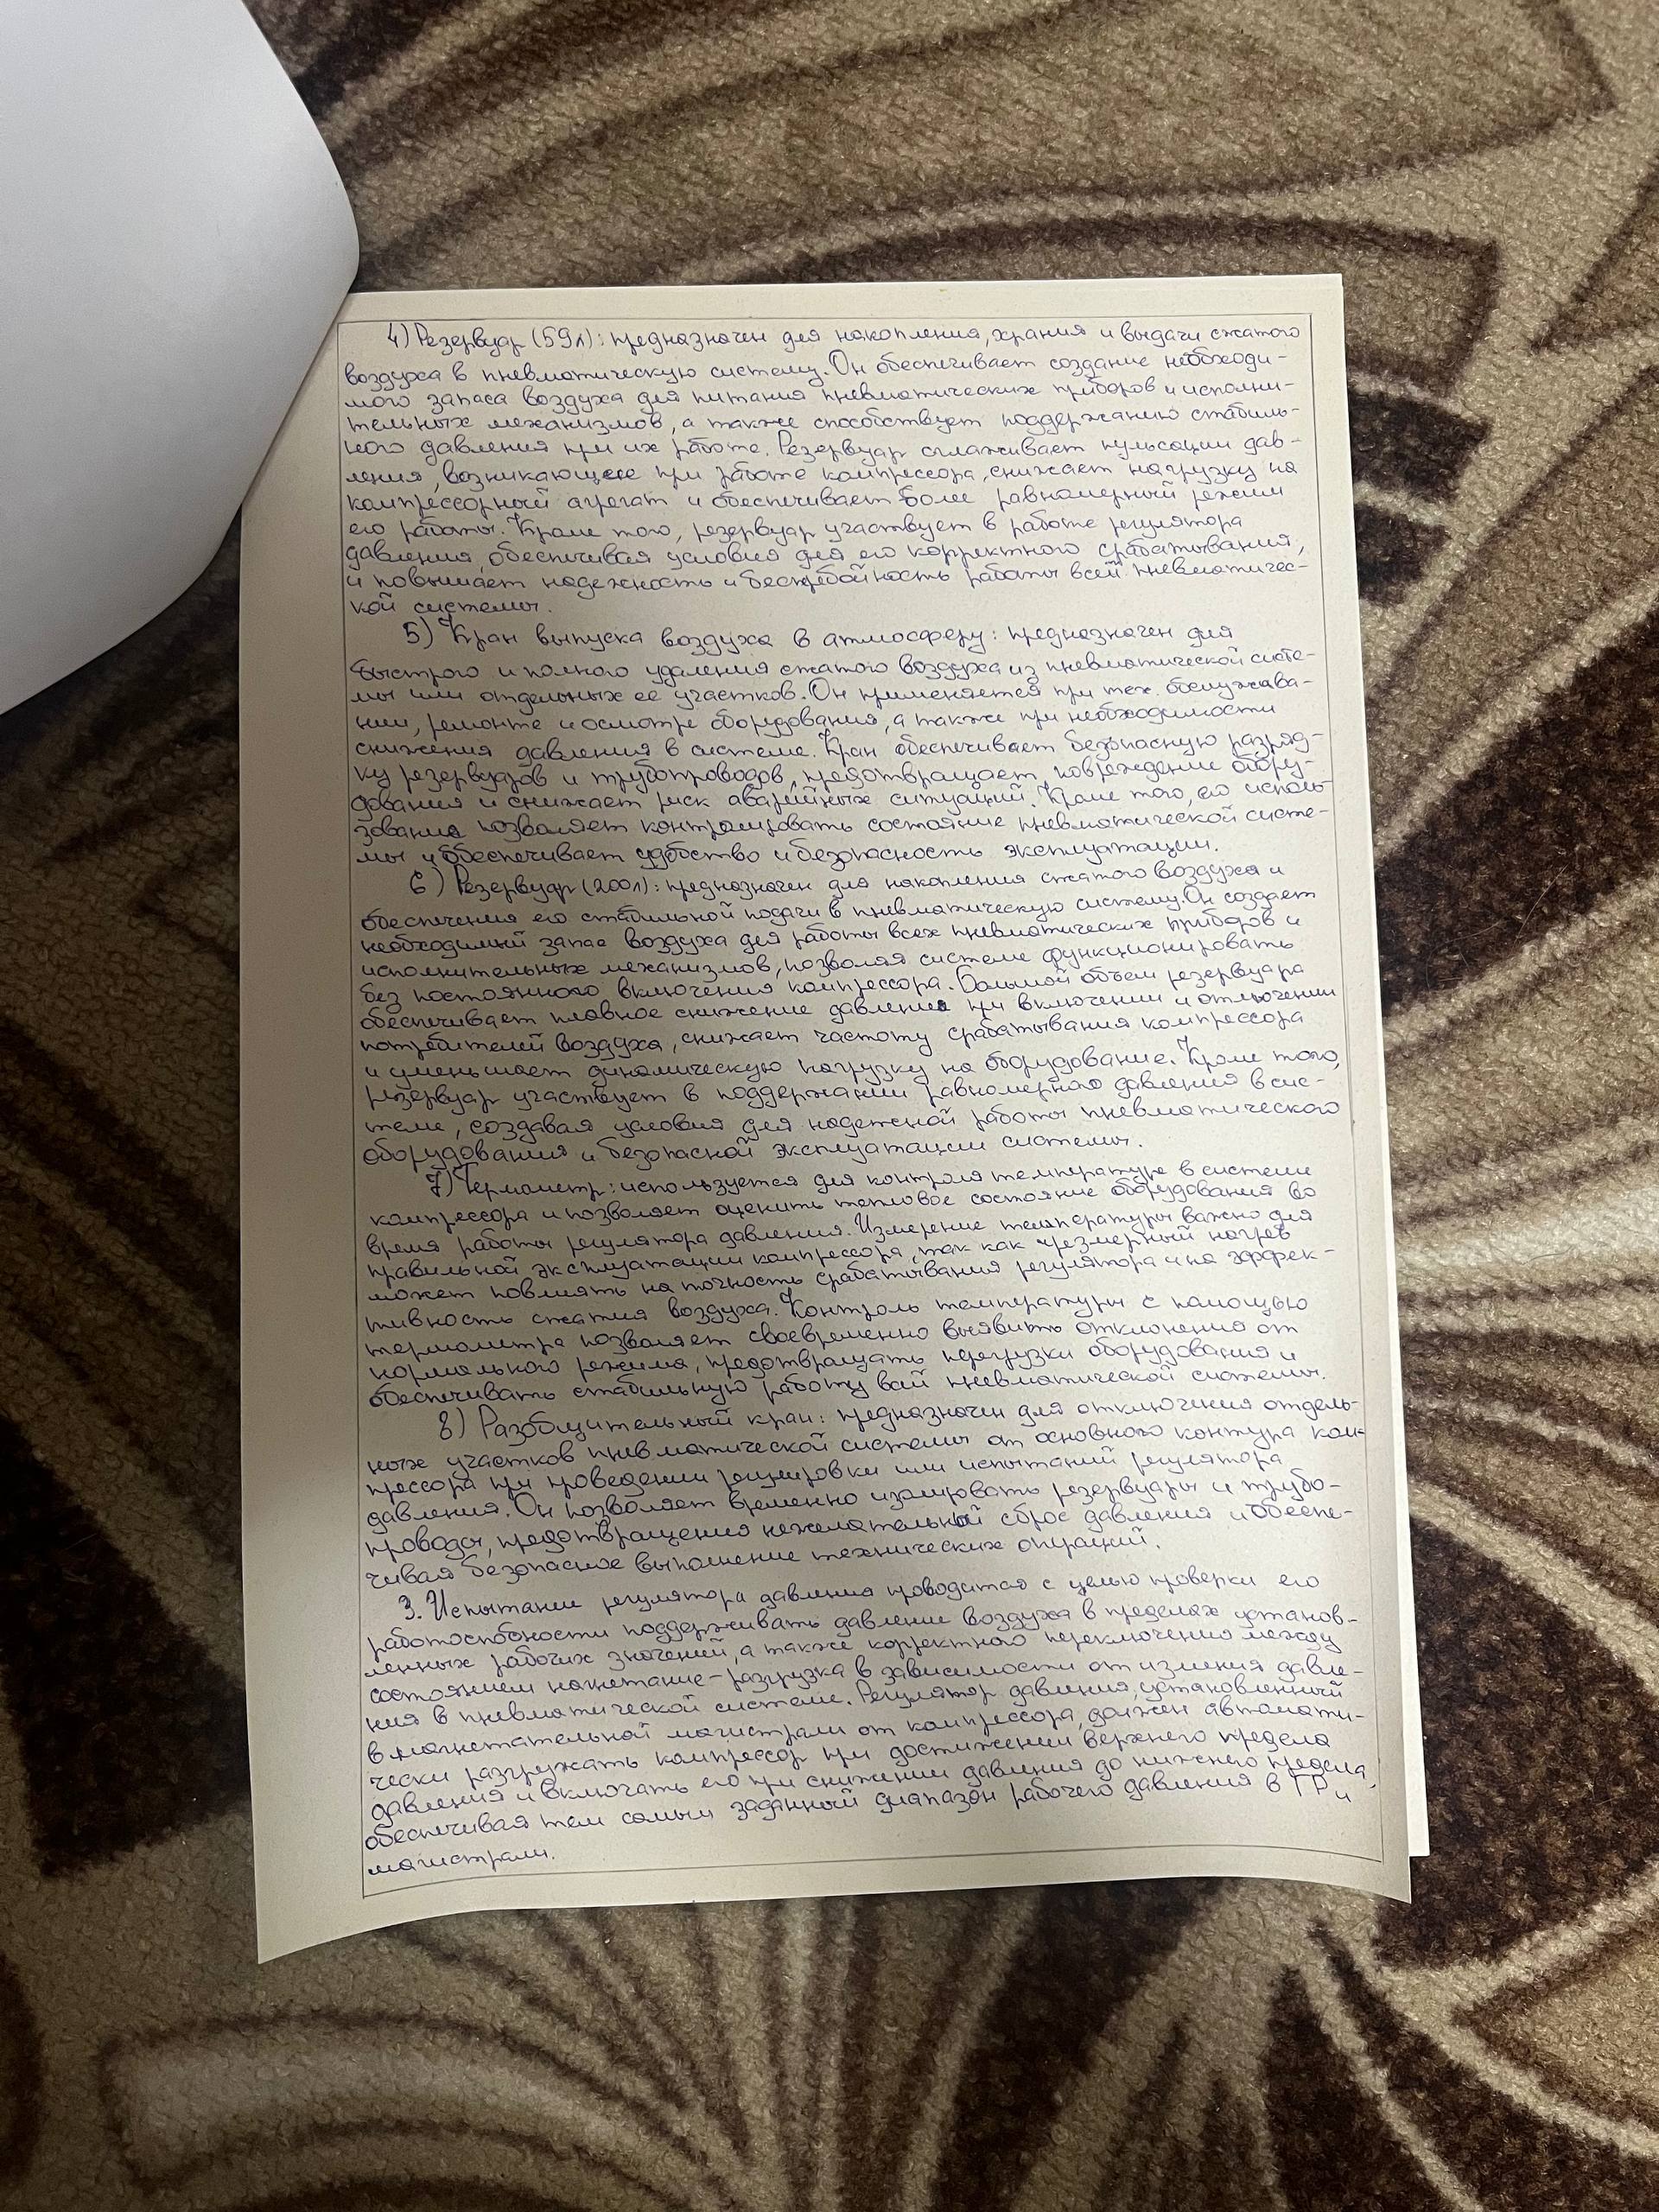 4) Резервуар (59л): предназначен для накопления, храния и выдачи сжатого
воздуха в пневматическую систему. Он обеспечивает создание необходи-
мого запаса воздуха для питания пневматических приборов и исполни-
тельных механизмов, а также способствует поддержанию стабиль-
ного давления при их работе. Резервуар сглаживает пульсации дав-
ления, возникающее при работе компрессора, снижает нагрузку на
компрессорный агрегат и обеспечивает более равномерный режим
его работы. Кроме того, резервуар участвует в работе регулятора
давления, обеспечивая условия для его корректного срабатывания,
и повышает надежность и бесперебойность работы всей пневматичес-
кой системы.
5) Кран выпуска воздуха в атмосферу: предназначен для
быстрого и полного удаления сжатого воздуха из пневматической систе-
мы или отдельных ее участков. Он применяется при тех. обслужива-
нии, ремонте и осмотре оборудования, а также при необходимости
снижения давления в системе. Кран обеспечивает безопасную разряд-
ку резервуаров и трубопроводов, предотвращает повреждение обору-
дования и снижает риск аварийных ситуаций. Кроме того, его исполь-
зование позволяет контролировать состояние пневматической систе-
мы и обеспечивает удобство и безопасность эксплуатации.
6) Резервуар (200л): предназначен для накопления сжатого воздуха и
обеспечения его стабильной подачи в пневматическую систему. Он создает
необходимый запас воздуха для работы всех пневматических приборов и
исполнительных механизмов, позволяя системе функционировать
без постоянного включения компрессора. Большой объем резервуара
обеспечивает плавное снижение давления при включении и отлючении
потребителей воздуха, снижает частоту срабатывания компрессора
и уменьшает динамическую нагрузку на оборудование. Кроме того,
резервуар участвует в поддержании равномерного давления в сис-
теме, создавая условия для надежной работы пневматического
оборудования и безопасной эксплуатации системы.
7) Термометр: используется для контроля температуре в системе
компрессора и позволяет оценить тепловое состояние оборудования во
время работы регулятора давления. Измерение температуры важно для
правильной эксплуатации компрессора, так как чрезмерный нагрев
может повлиять на точность срабатывания регулятора и на эффек-
тивность сжатия воздуха. Контроль температуры с помощью
термометра позволяет своевременно выявить отклонения от
нормального режима, предотвращать перегрузки оборудования и
обеспечивать стабильную работу всей пневматической системы.
8) Разобщительный кран: предназначен для отключения отдель-
ных участков пневматической системы от основного контура ком-
прессора при проведении регулировки или испытаний регулятора
давления. Он позволяет временно изолировать резервуары и трубо-
проводы, предотвращения нежелательный сброс давления и обеспе-
чивая безопасное выполнение технических операций.
3. Испытание регулятора давления проводится с целью проверки его
работоспособности поддерживать давление воздуха в пределах установ-
ленных рабочих значений, а также корректного переключения между
состоянием нагнетание-разгрузка в зависимости от измения давле-
ния в пневматической системе. Регулятор давления, установленный
в нагнетательной магистрали от компрессора, должен автомати-
чески разгружать компрессор при достижении верхнего предела
давления и включать его при снижении давления до нижнего предела,
обеспечивая тем самым заданный диапазон рабочего давления в ГР и
магистрали.